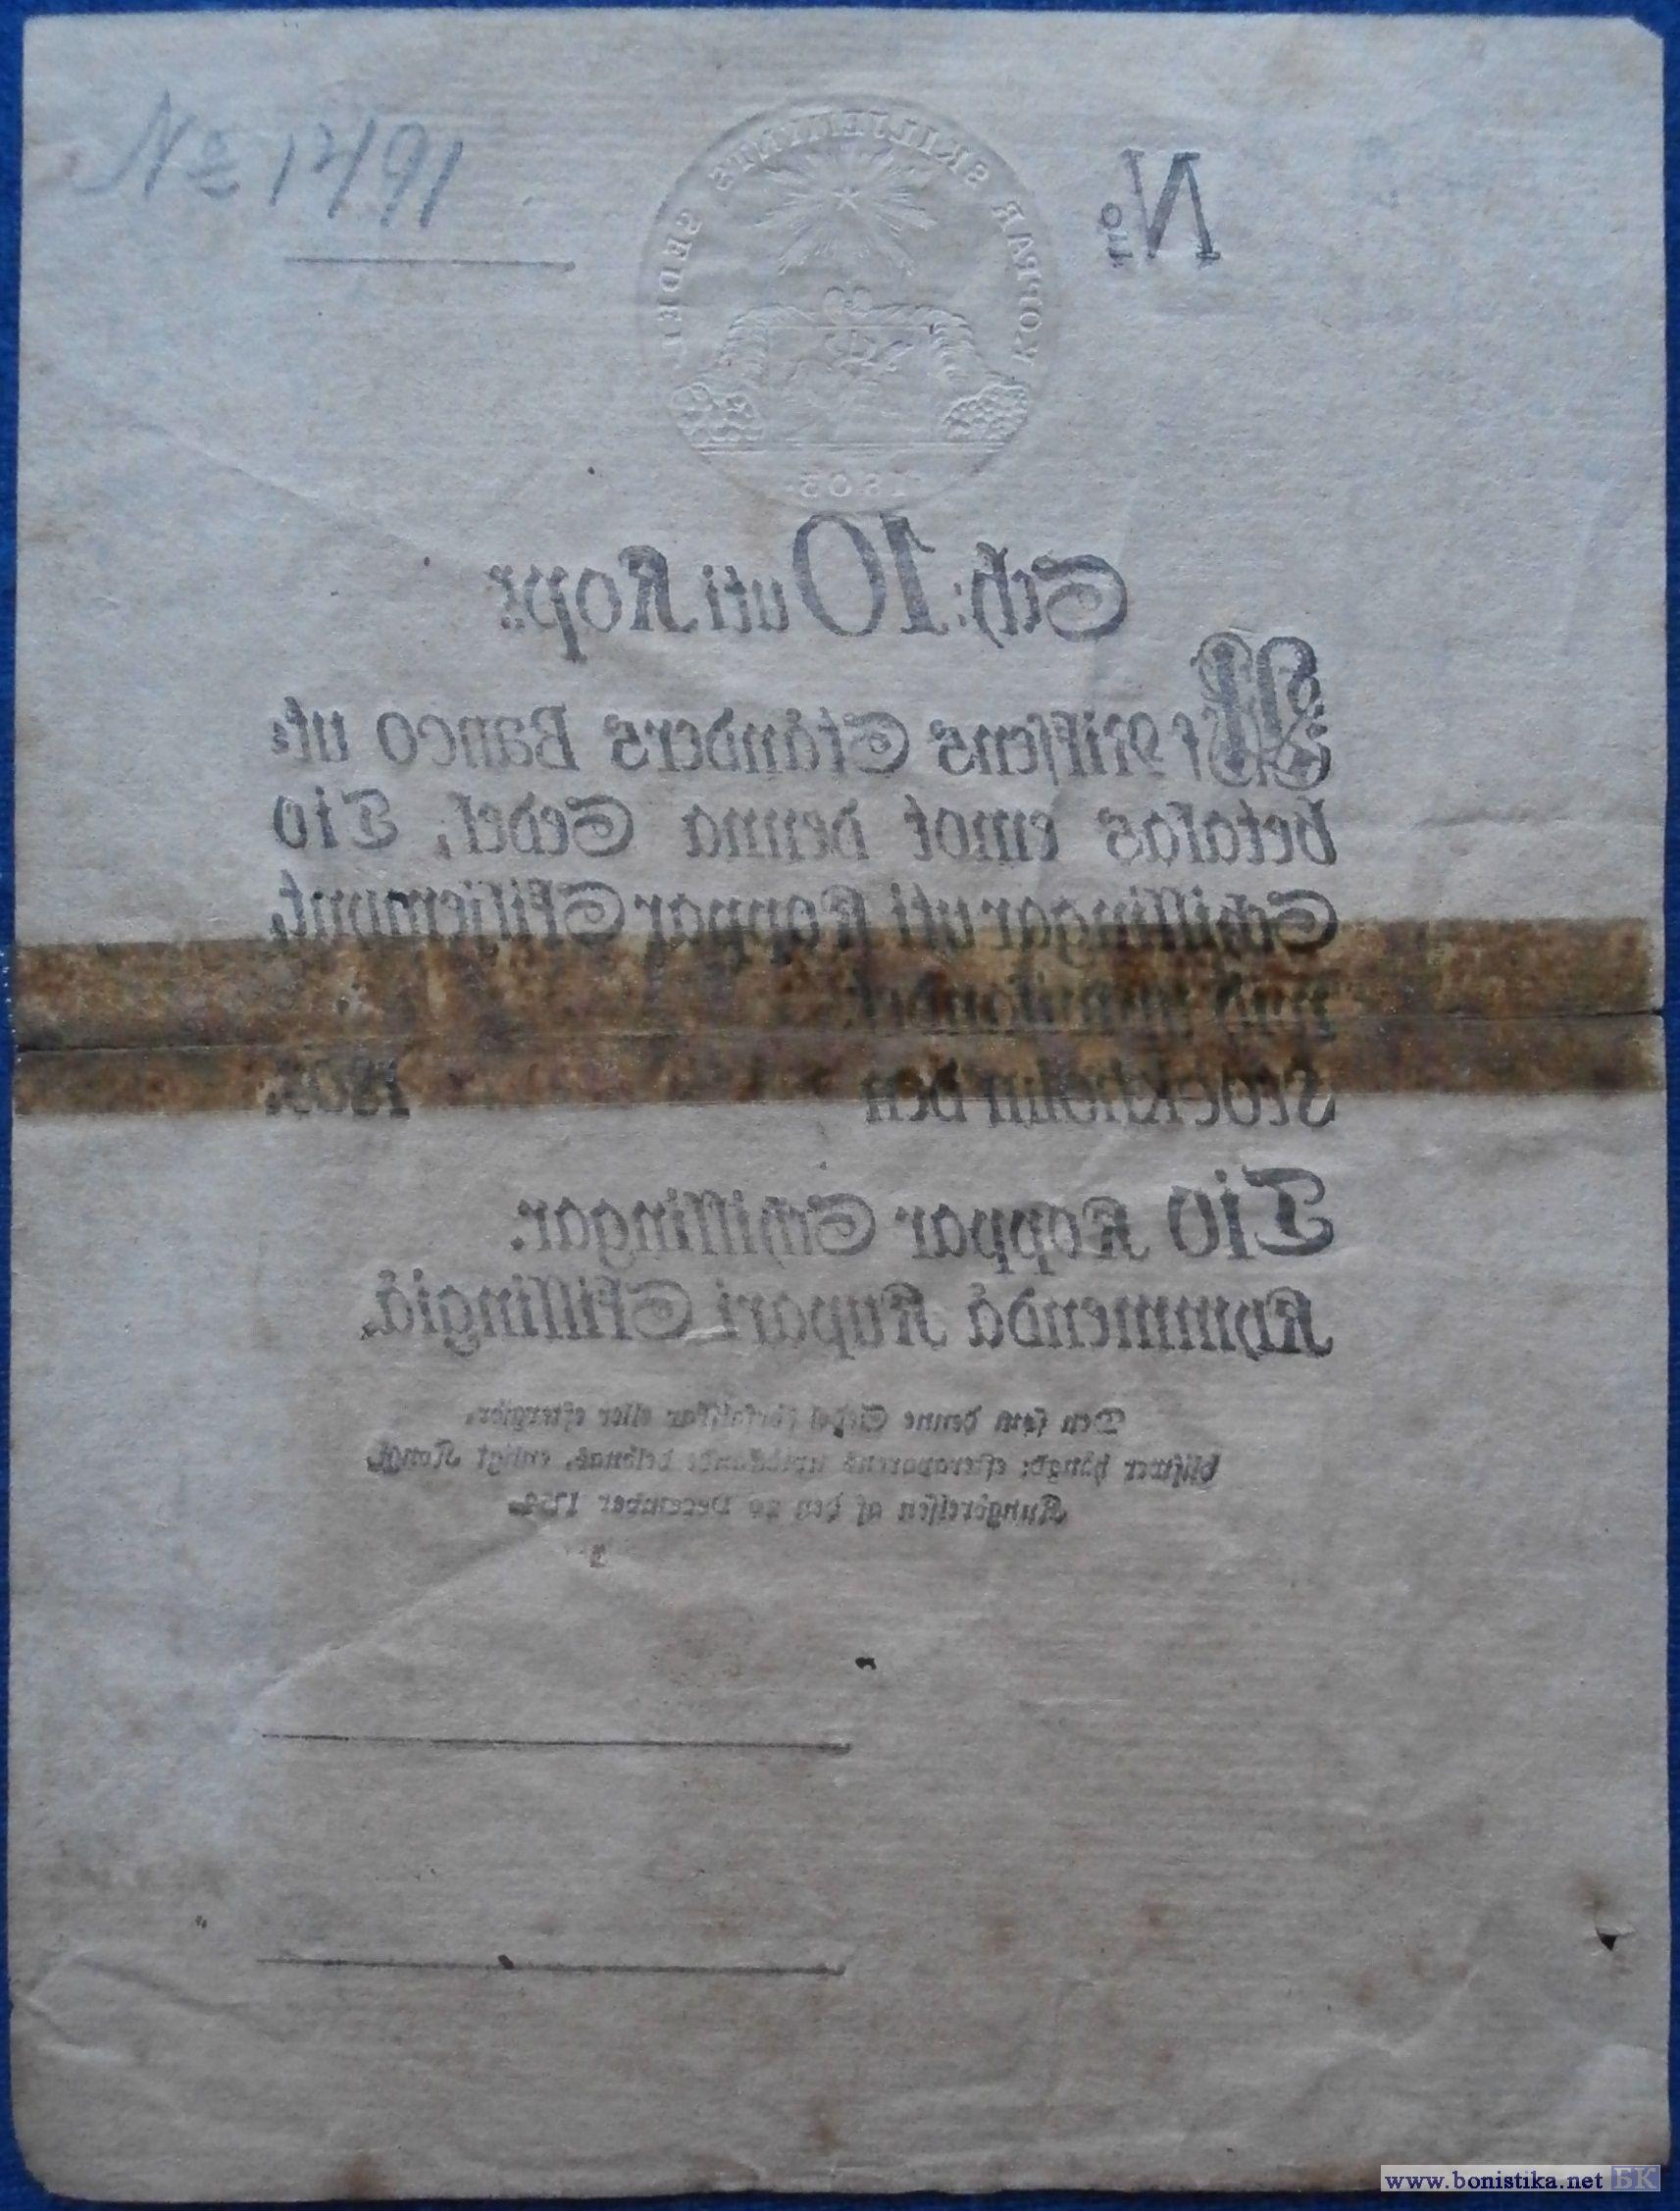 No 12191
No
KOPPAR SKILJEMYNTS SEDEL
1805
Sch: 10 uti Kopr
Af Riksens Ständers Banco ut-
betalas emot denna Sedel, Tio
Schillingar uti Koppar Skiljemynt,
Stockholm den 1805.
Tio Koppar Schillingar.
Kymmendä Kupari Skillingiä.
Den som denne Sedel förfalskar eller eftergiör,
blifwer hängd; efteraparenä belönas, enligt Kongl.
Kungörelsen af den December
www.bonistika.net БК